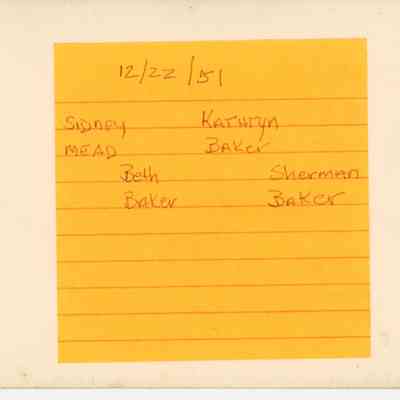 12/22/51
SIDNEY Kathryn
MEAD Baker
Beth Sherman
Baker Baker